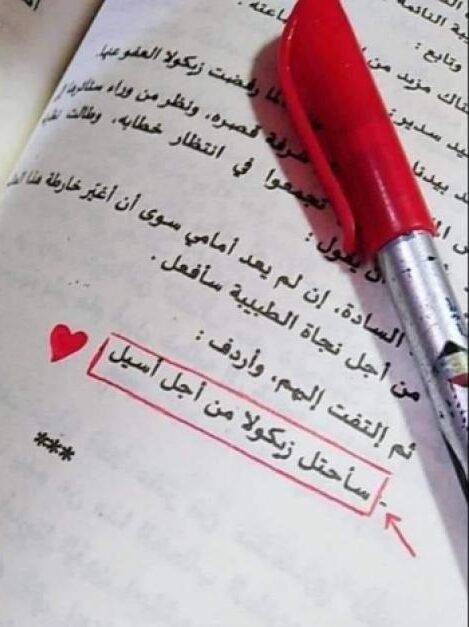 ية النائمة
ساعته .
وتابع :
ناك مزيد من
يد سديم
لما رفضت زيكولا العفو عنها.
بيدنا
شرفة قصره، ونظر من وراء ستائرها
تجمعوا في انتظار خطابه، وطالت
أن يقول :
السادة، إن لم يعد أمامي سوى أن أغيّر خارطة هذا
من أجل نجاة الطبيبة سأفعل .
ثم إلتفت إليهم، وأردف :
- سأحتل زيكولا من أجل أسيل
***